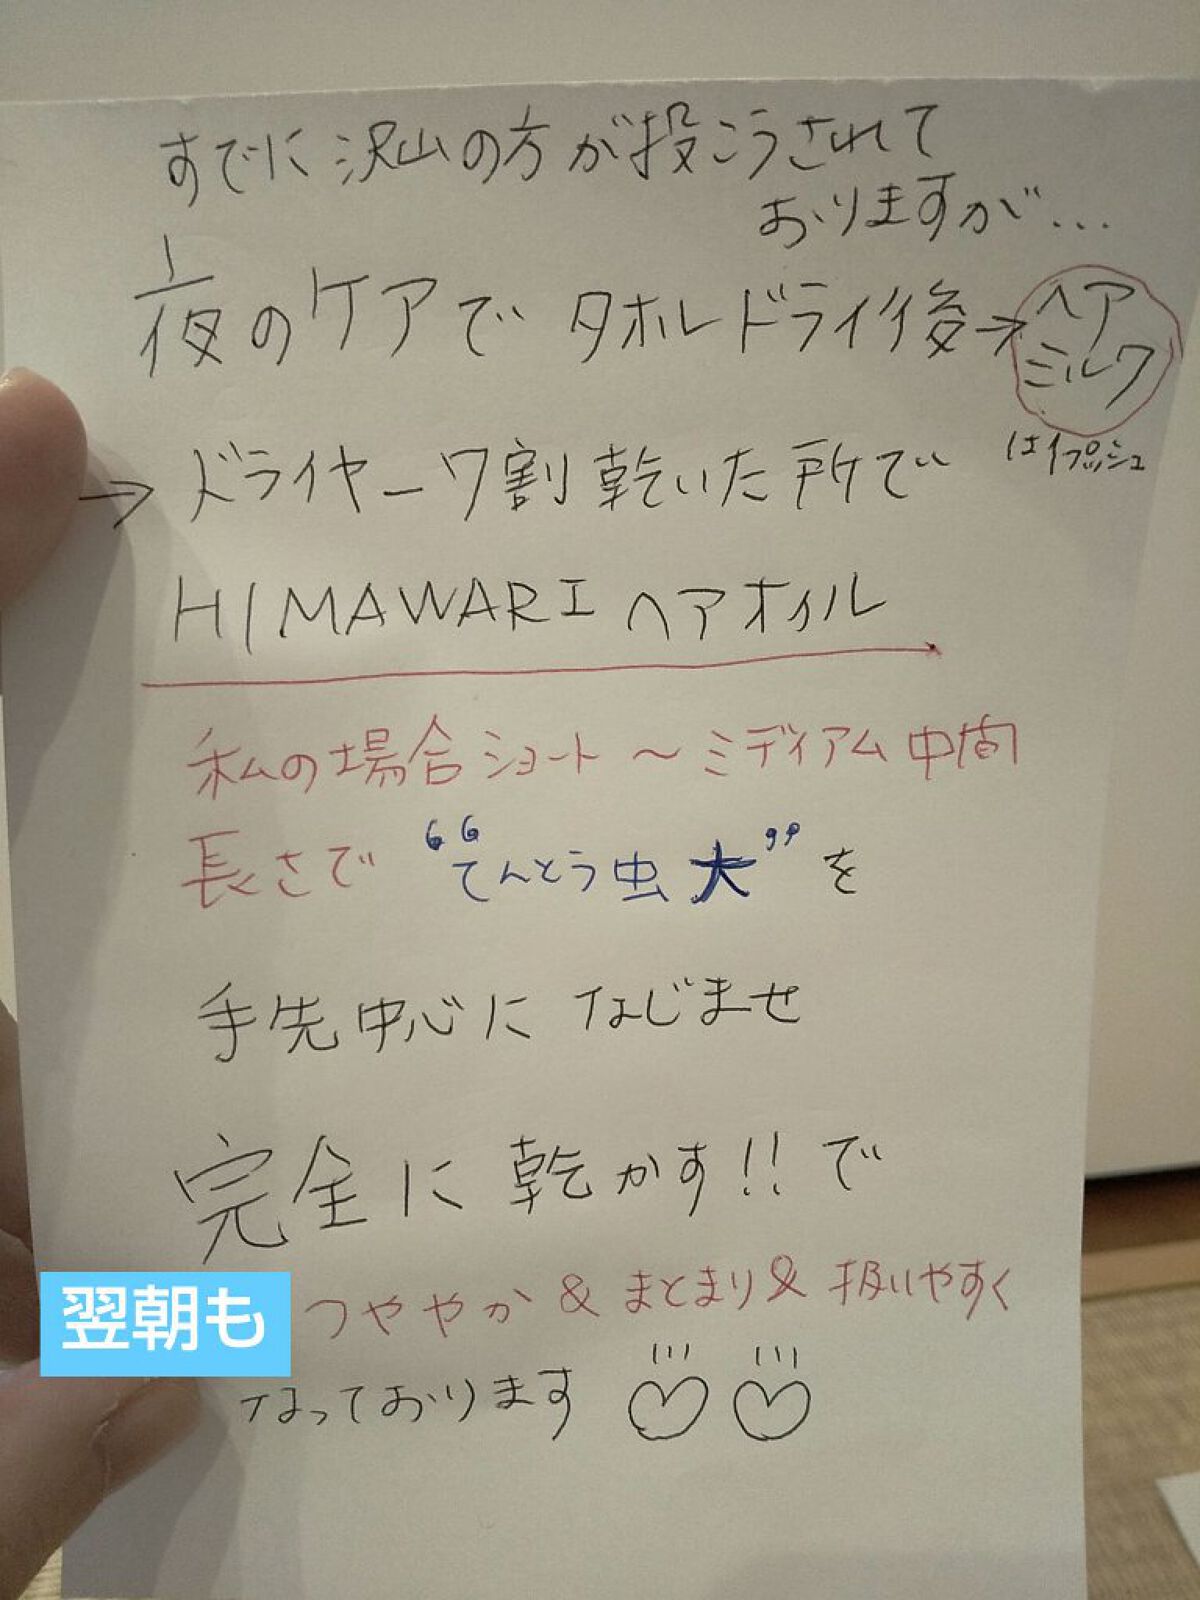 すでに沢山の方が投こうされて
おりますが...
夜のケアでタオルドライ後→ヘアミルク
は1プッシュ
→ドライヤー7割乾いた所で
HIMAWARIヘアオイル
私の場合ショート～ミディアム中間
長さで“てんとう虫大”を
手先中心になじませ
完全に乾かす!!で
翌朝も つややか&まとまり&扱いやすく
なっております